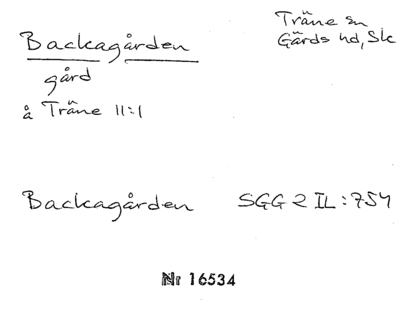 Backagården
Träne sn
Gärds hd, Sk
gård
å Träne 11:1
Backagården SGG 2 IL:754
Nr 16534